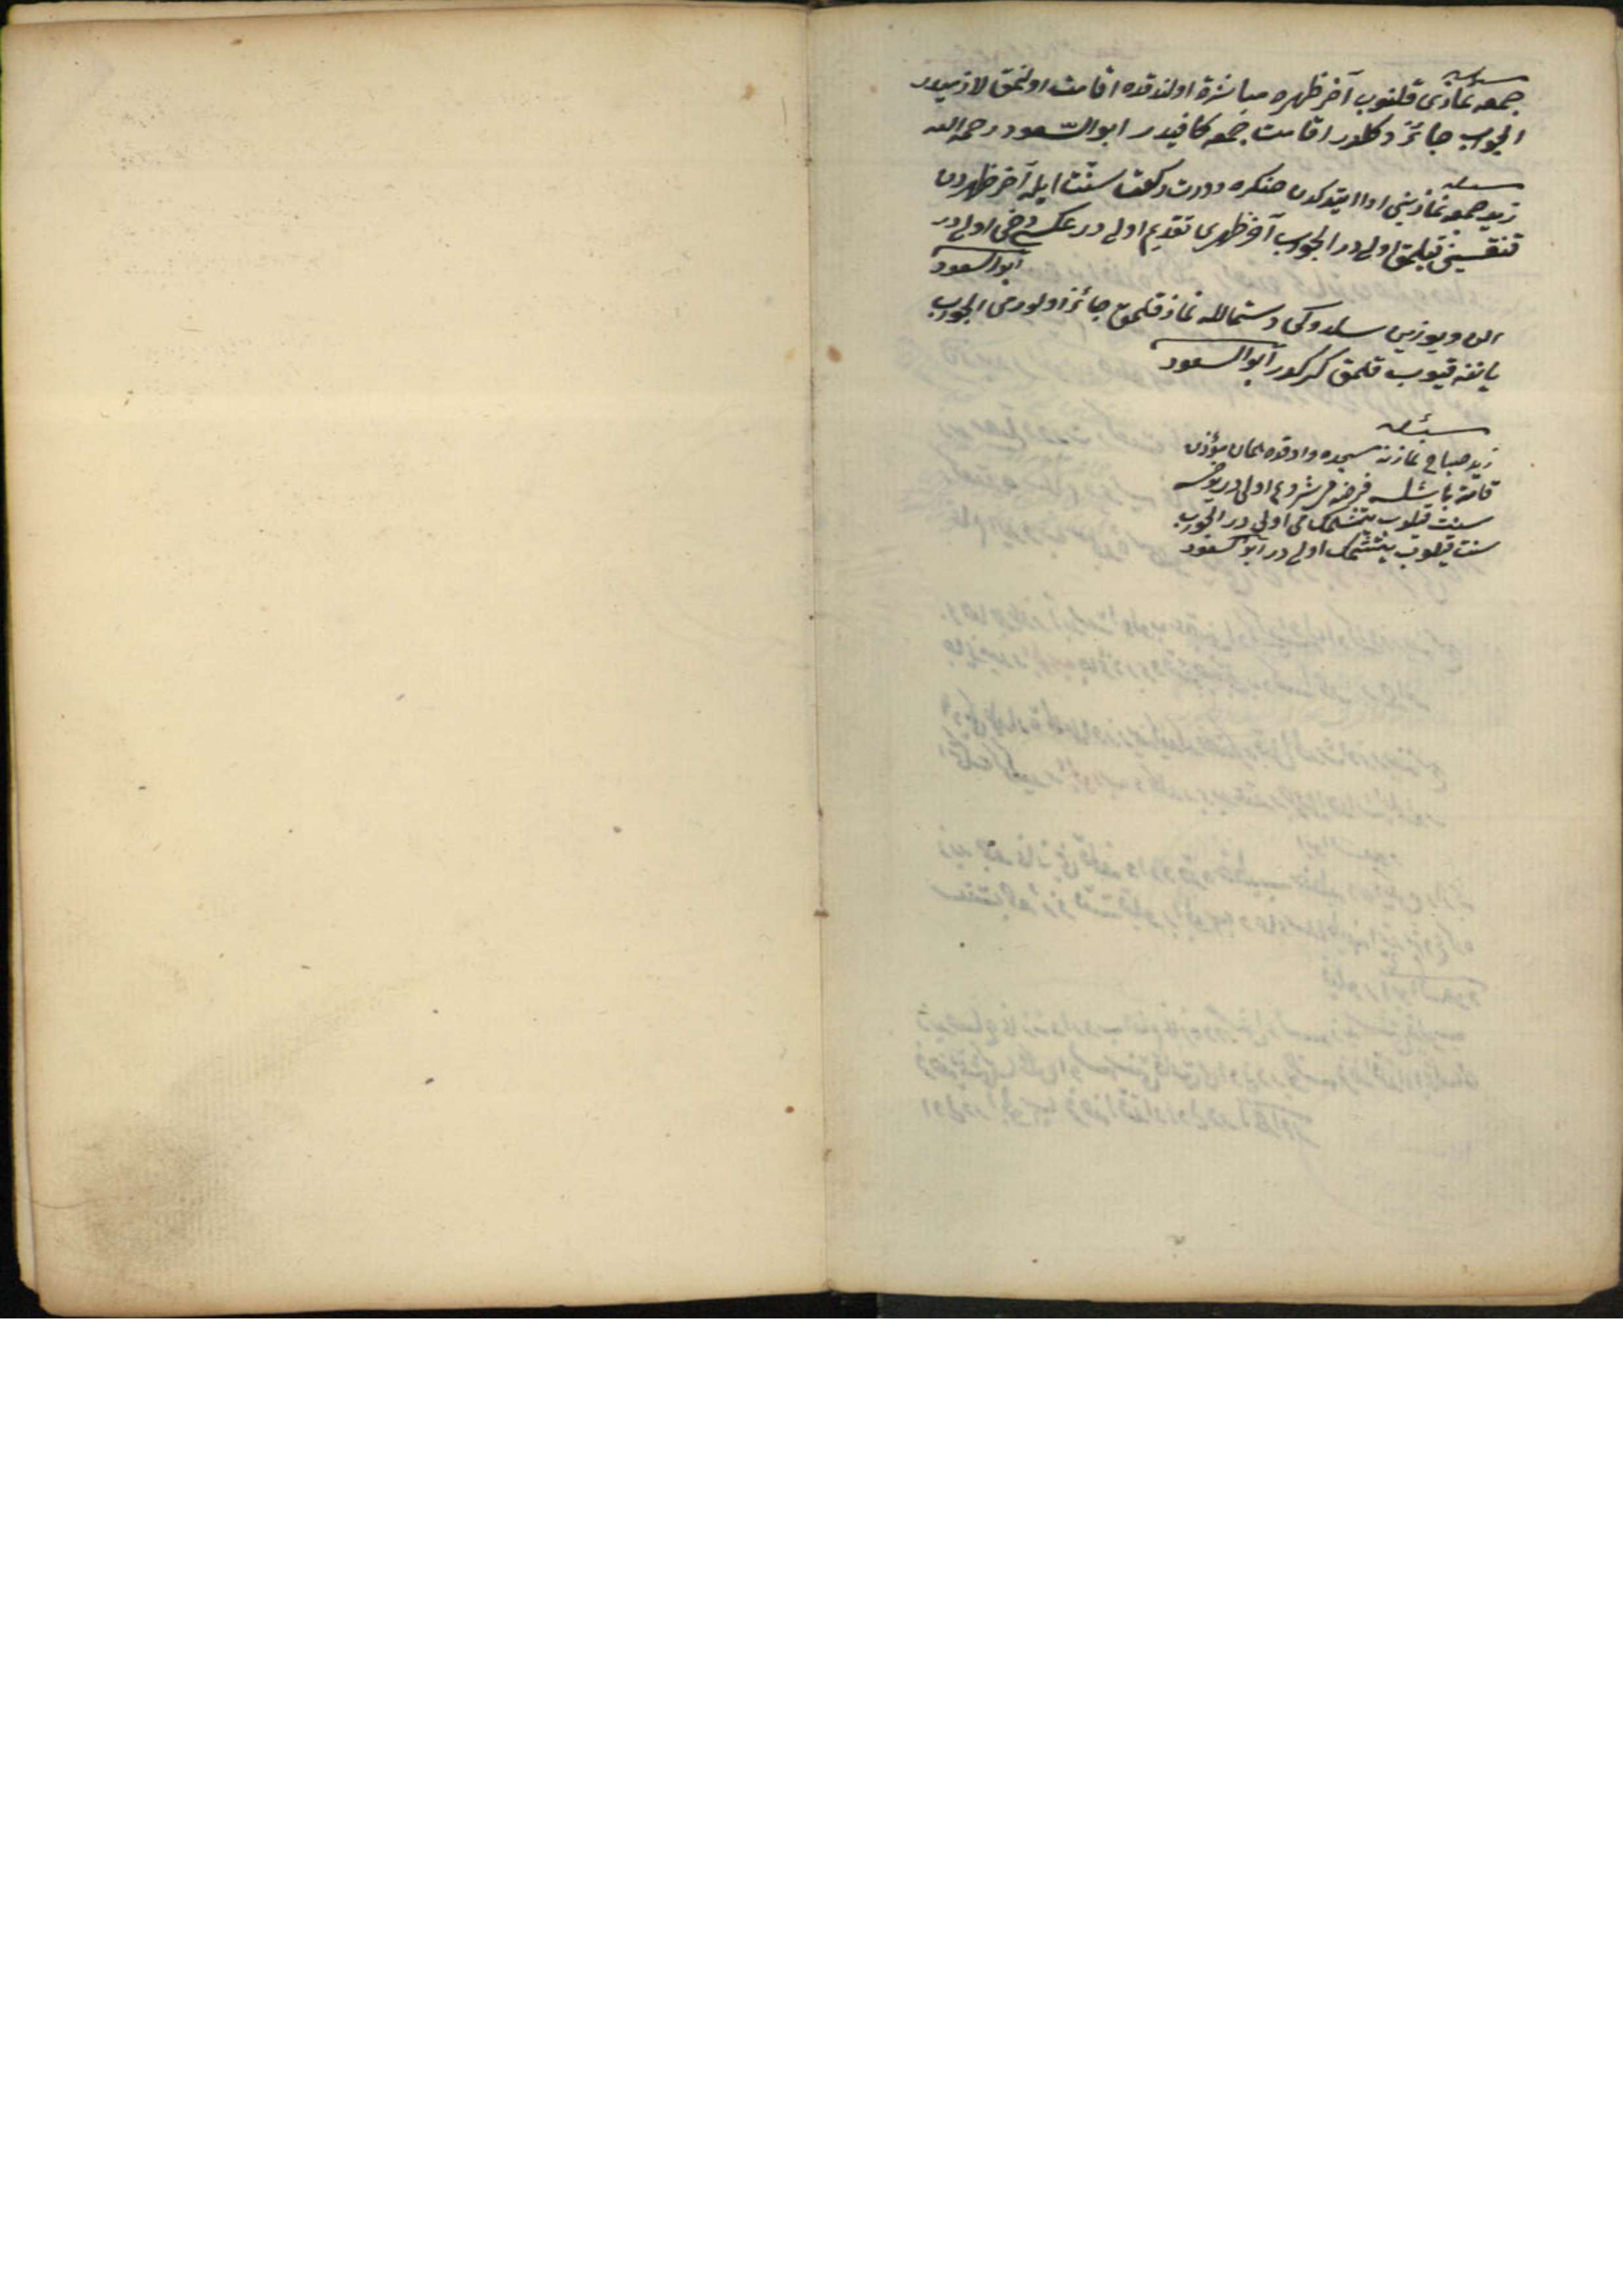 مسئله
جمعه نمازى قلنوب آخر ظهره مباشرة اولندقده اقامت اولنمق لازميدر
الجواب جائز دكلدر اقامت جمعه كافيدر ابو السّعود رحمه الله
مسئله
زيد جمعه نمازينى ادا ايتدكدن صكره دورت ركعت سنّت ايله آخر ظهردن
قنقسينى قيلمق اولى در الجواب آخر ظهرى تقديم اولى در عكسى دخى اولى در
ابو السعود
الن و يوزين سلدوكى دستمالله نماز قلمق جائز اولورمى الجواب
ياننه قيوب قلمق كركدر ابو السعود
مسئله
زيد صباح نمازنه مسجده واردقده همان مؤذن
قامته باشلسه فرضه مى شروع اولى در يوخسه
سنت قيلوب يتشمك مى اولى در الجواب
سنت قيلوب يتشمك اولى در ابو السعود